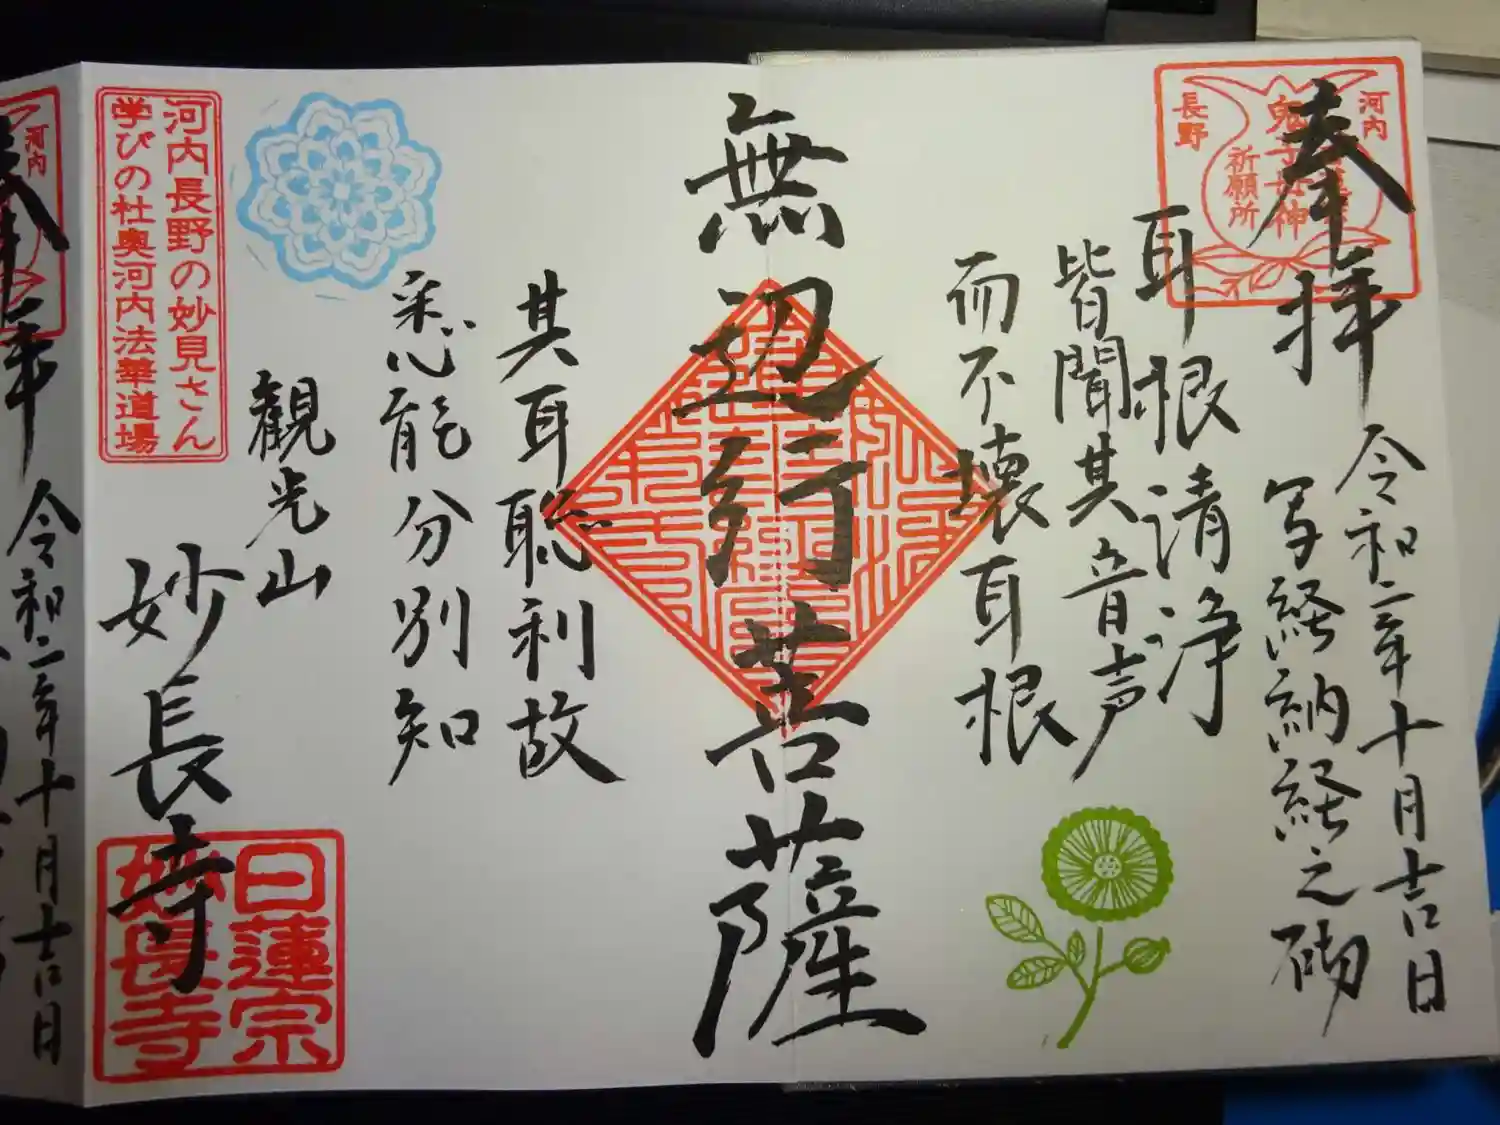 奉拝
河内
長野
鬼子母神
祈願所
令和二年十月吉日
写経納経之砌
耳根清浄
皆聞其音声
而不壊耳根
無辺行菩薩
其耳聡利故
悉能分別知
観光山
妙長寺
河内長野の妙見さん
学びの杜奥河内法華道場
日蓮宗
妙長寺
河内
令和二年十月吉日